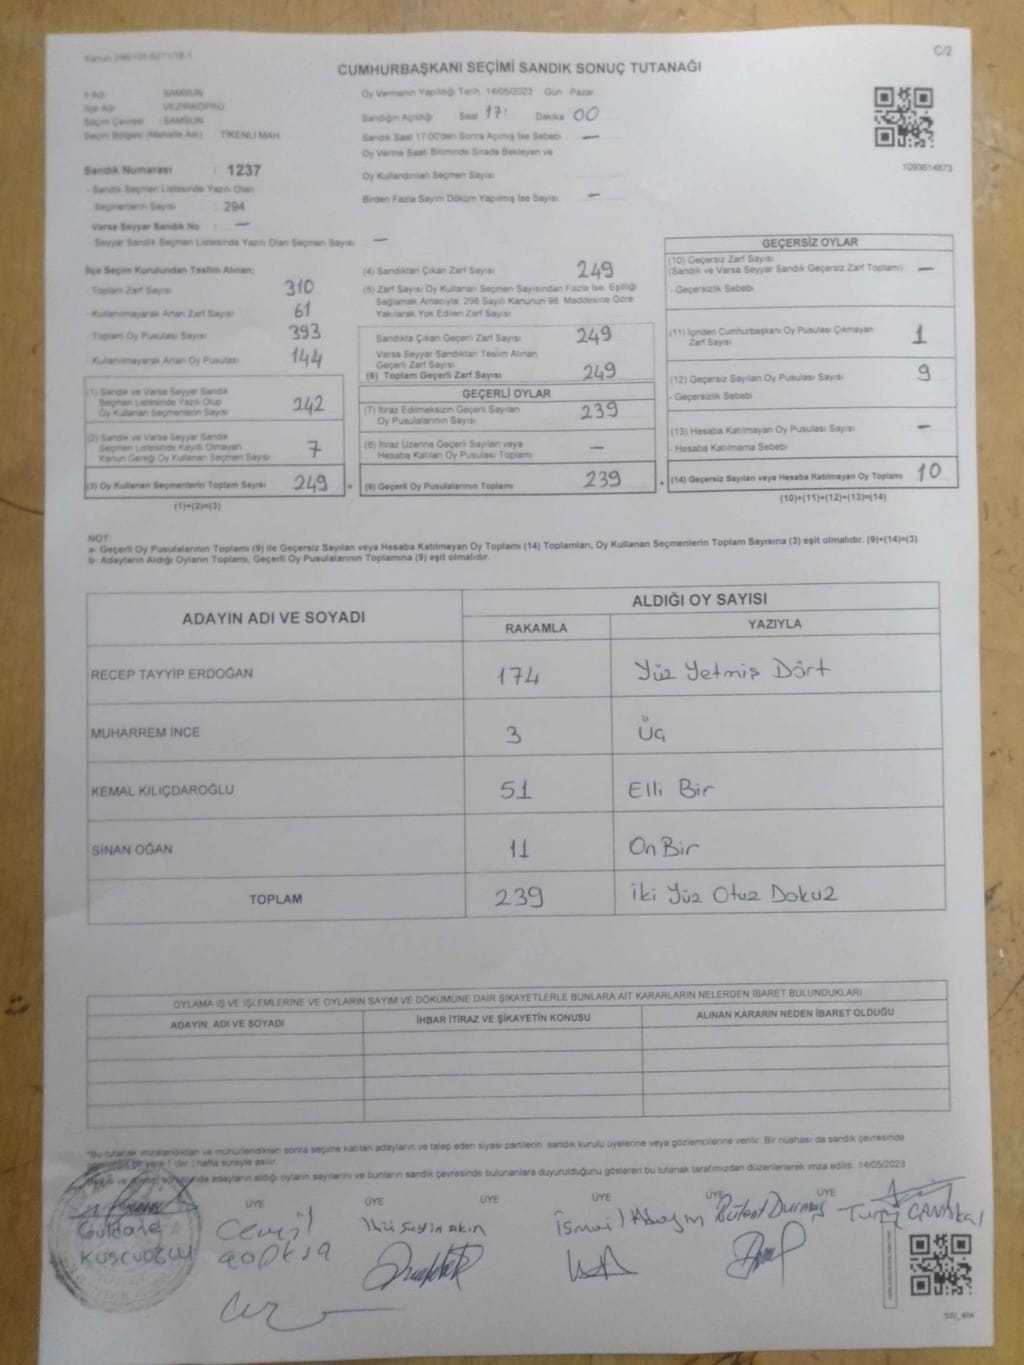 C/2
CUMHURBAŞKANI SEÇİMİ SANDIK SONUÇ TUTANAĞI
İl Adı SAMSUN
İlçe Adı VEZİRKÖPRÜ
Seçim Çevresi : SAMSUN
Seçim Bölgesi (Mahalle Adı) : TİKENLİ MAH
Sandık Numarası : 1237
- Sandık Seçmen Listesinde Yazılı Olan
Seçmenlerin Sayısı : 294
Varsa Seyyar Sandık No : —
- Seyyar Sandık Seçmen Listesinde Yazılı Olan Seçmen Sayısı : —
Oy Vermenin Yapıldığı Tarih 14/05/2023 Gün Pazar
Sandığın Açıldığı Saat 17: Dakika 00
Sandık Saat 17.00'den Sonra Açılmış İse Sebebi —
Oy Verme Saati Bitiminde Sırada Bekleyen ve
Oy Kullandırılan Seçmen Sayısı
Birden Fazla Sayım Döküm Yapılmış İse Sayısı —
1093614873
İlçe Seçim Kurulundan Teslim Alınan;
- Toplam Zarf Sayısı 310
- Kullanılmayarak Artan Zarf Sayısı 61
- Toplam Oy Pusulası Sayısı 393
- Kullanılmayarak Artan Oy Pusulası 144
(1) Sandık ve Varsa Seyyar Sandık
Seçmen Listesinde Yazılı Olup
Oy Kullanan Seçmenlerin Sayısı 242
(2) Sandık ve Varsa Seyyar Sandık
Seçmen Listesinde Kayıtlı Olmayan
Kanun Gereği Oy Kullanan Seçmen Sayısı 7
(3) Oy Kullanan Seçmenlerin Toplam Sayısı 249 =
(1)+(2)=(3)
(4) Sandıktan Çıkan Zarf Sayısı 249
(5) Zarf Sayısı Oy Kullanan Seçmen Sayısından Fazla İse, Eşitliği
Sağlamak Amacıyla, 298 Sayılı Kanunun 98. Maddesine Göre
Yakılarak Yok Edilen Zarf Sayısı
Sandıkta Çıkan Geçerli Zarf Sayısı 249
Varsa Seyyar Sandıktan Teslim Alınan
Geçerli Zarf Sayısı
(6) Toplam Geçerli Zarf Sayısı 249
GEÇERLİ OYLAR
(7) İtiraz Edilmeksizin Geçerli Sayılan
Oy Pusulalarının Sayısı 239
(8) İtiraz Üzerine Geçerli Sayılan veya
Hesaba Katılan Oy Pusulası Toplamı —
(9) Geçerli Oy Pusulalarının Toplamı 239
GEÇERSİZ OYLAR
(10) Geçersiz Zarf Sayısı
(Sandık ve Varsa Seyyar Sandık Geçersiz Zarf Toplamı) —
- Geçersizlik Sebebi
(11) İçinden Cumhurbaşkanı Oy Pusulası Çıkmayan
Zarf Sayısı 1
(12) Geçersiz Sayılan Oy Pusulası Sayısı 9
- Geçersizlik Sebebi
(13) Hesaba Katılmayan Oy Pusulası Sayısı —
- Hesaba Katılmama Sebebi
(14) Geçersiz Sayılan veya Hesaba Katılmayan Oy Toplamı 10
(10)+(11)+(12)+(13)=(14)
NOT:
a- Geçerli Oy Pusulalarının Toplamı (9) ile Geçersiz Sayılan veya Hesaba Katılmayan Oy Toplamı (14) Toplamları, Oy Kullanan Seçmenlerin Toplam Sayısına (3) eşit olmalıdır. (9)+(14)=(3)
b- Adayların Aldığı Oyların Toplamı, Geçerli Oy Pusulalarının Toplamına (9) eşit olmalıdır.
ADAYIN ADI VE SOYADI ALDIĞI OY SAYISI
RAKAMLA YAZIYLA
RECEP TAYYİP ERDOĞAN 174 Yüz Yetmiş Dört
MUHARREM İNCE 3 Üç
KEMAL KILIÇDAROĞLU 51 Elli Bir
SİNAN OĞAN 11 On Bir
TOPLAM 239 İki Yüz Otuz Dokuz
OYLAMA İŞ VE İŞLEMLERİNE VE OYLARIN SAYIM VE DÖKÜMÜNE DAİR ŞİKAYETLERLE BUNLARA AİT KARARLARIN NELERDEN İBARET BULUNDUKLARI
ADAYIN ADI VE SOYADI İHBAR İTİRAZ VE ŞİKAYETİN KONUSU ALINAN KARARIN NEDEN İBARET OLDUĞU
*Bu tutanak imzalandıktan ve mühürlendikten sonra seçime katılan adayların ve talep eden siyasi partilerin sandık kurulu üyelerine veya gözlemcilerine verilir. Bir nüshası da sandık çevresinde
bir yere 1 (bir) hafta süreyle asılır.
adayların aldığı oyların sayılarını ve bunların sandık çevresinde bulunanlara duyurulduğunu gösteren bu tutanak tarafımızdan düzenlenerek imza edildi. 14/05/2023
ÜYE ÜYE ÜYE ÜYE ÜYE ÜYE
Güldane Hüseyin AKIN İsmail Bülent Durmuş
KUŞÇUOĞLU